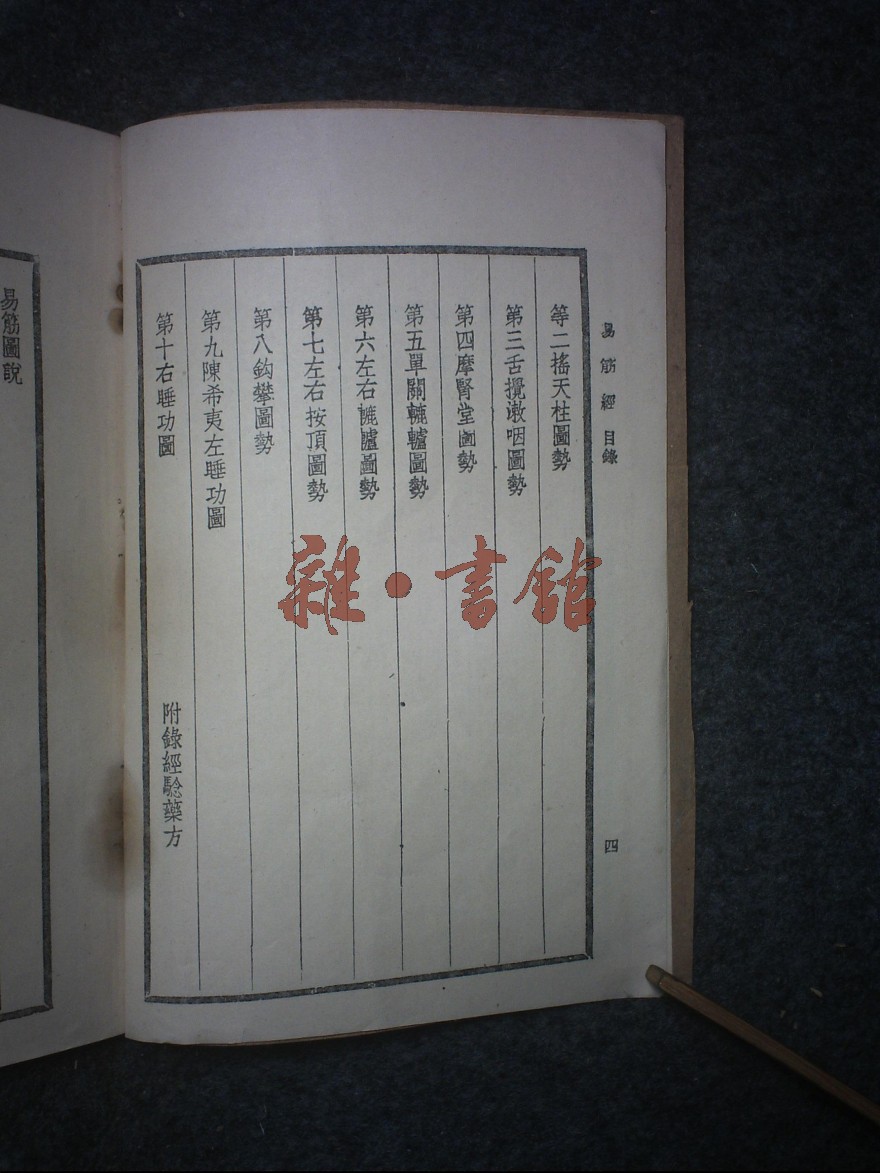 易筋經 目錄
四
等二搖天柱圖勢
第三舌攪漱咽圖勢
第四摩腎堂圖勢
第五單關轆轤圖勢
第六左右轆轤圖勢
第七左右按頂圖勢
第八鈎攀圖勢
第九陳希夷左睡功圖
第十右睡功圖
附錄經驗藥方
易筋圖說
雜·書館